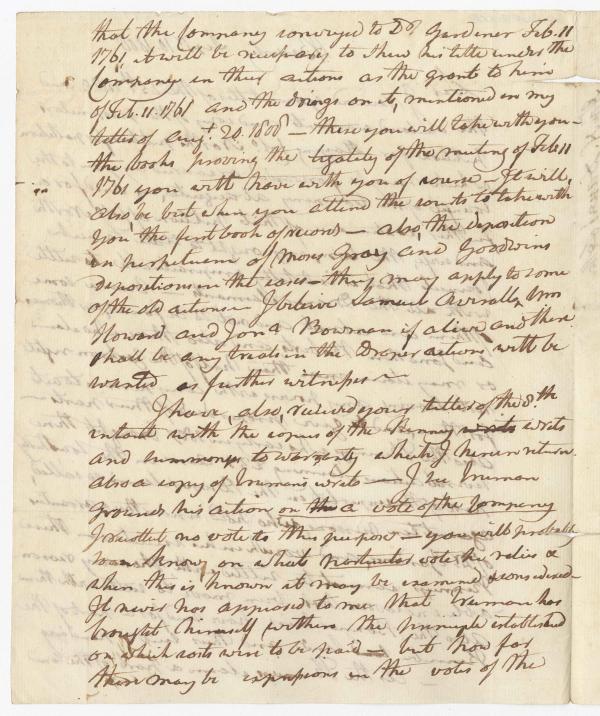 that the Company conveyed to Dr. Gardener Feb. 11
1761 it will be necessary to shew his title under the
Company in their actions as the grant to him
of Feb. 11. 1761 and the doings on it, mentioned in my
letter of Augt. 20. 1808 — these you will take with you —
the books proving the legality of the meeting of Feb 11
1761 you will have with you of course — It will
also be best when you attend the courts to take with
you the first book of records — also, the deposition
in perpetuam of Moses Gray and Goodwins
depositions in the cases — they may apply to some
of the old actions — I believe Samuel Averall, Wm
Howard and Jona Bowman if alive and there
shall be any trials in the actions will be
wanted as further witnesses —
I have, also, received your letter of the 8.th
instant with the copies of the writs
and summons to warranty which I herein return
also a copy of Trumans writs — I see Truman
grounds his action on the a vote of the Company
I recollect no vote to this purpose — you will probably
soon know on what particular vote he relies &
when this is known it may be examined & considered —
It never has appeared to me that Truman has
brought himself within the principle established
on which costs were to be paid — but how far
there may be expressions in the votes of the